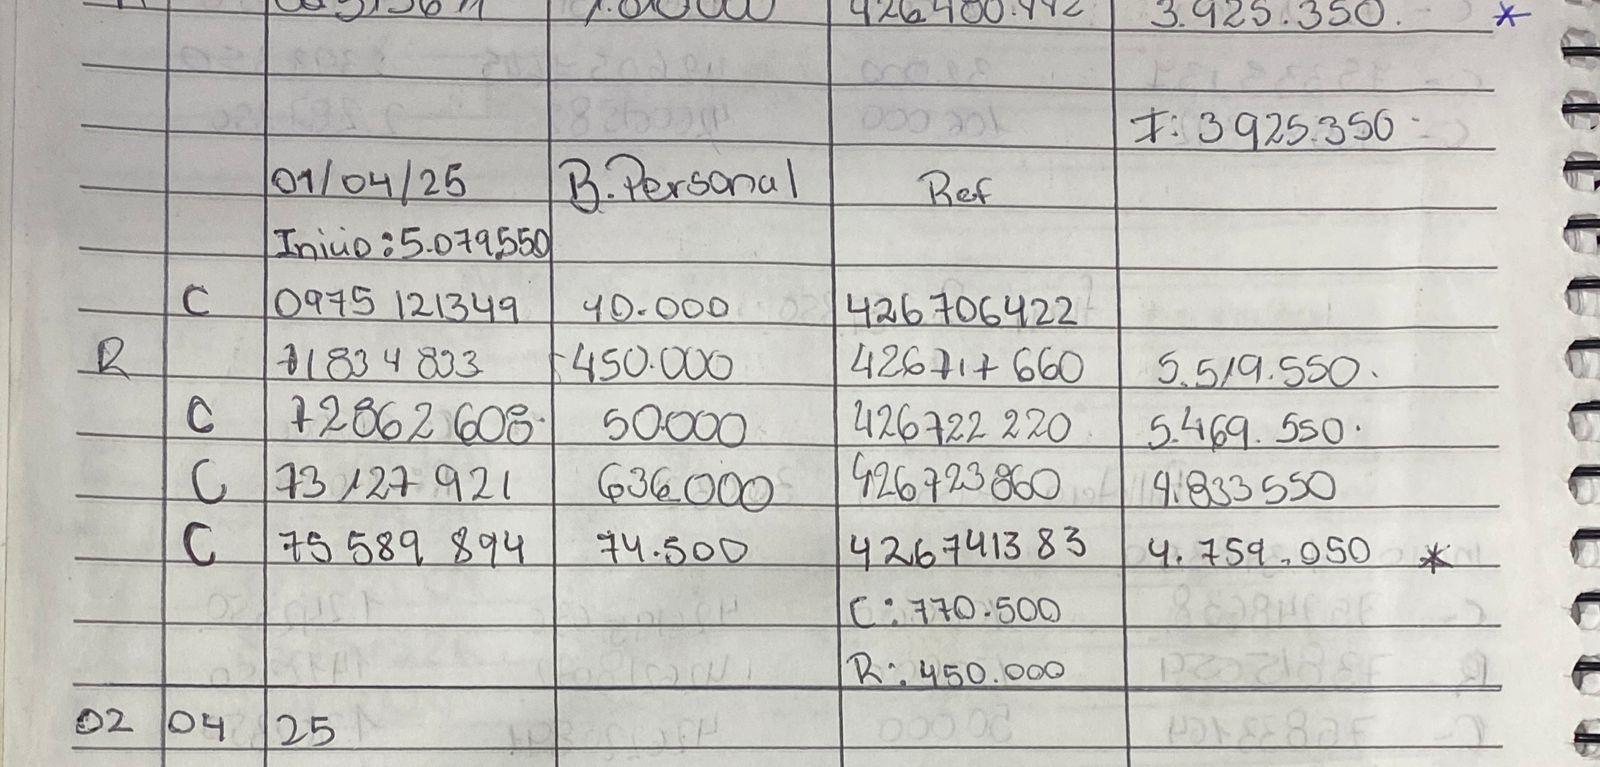 3.925.350. *
I: 3925.350
01/04/25 B.Personal Ref
Inicio: 5.079.550
C 0975 121349 10.000 426706422
R 71834833 450.000 426717660 5.519.550.
C 72862608. 50.000 426722220 5.469.550.
C 73127921 636.000 426723860 4.833550
C 75589894 74.500 426741383 4.759.050 *
C: 770.500
R: 450.000
02 04 25